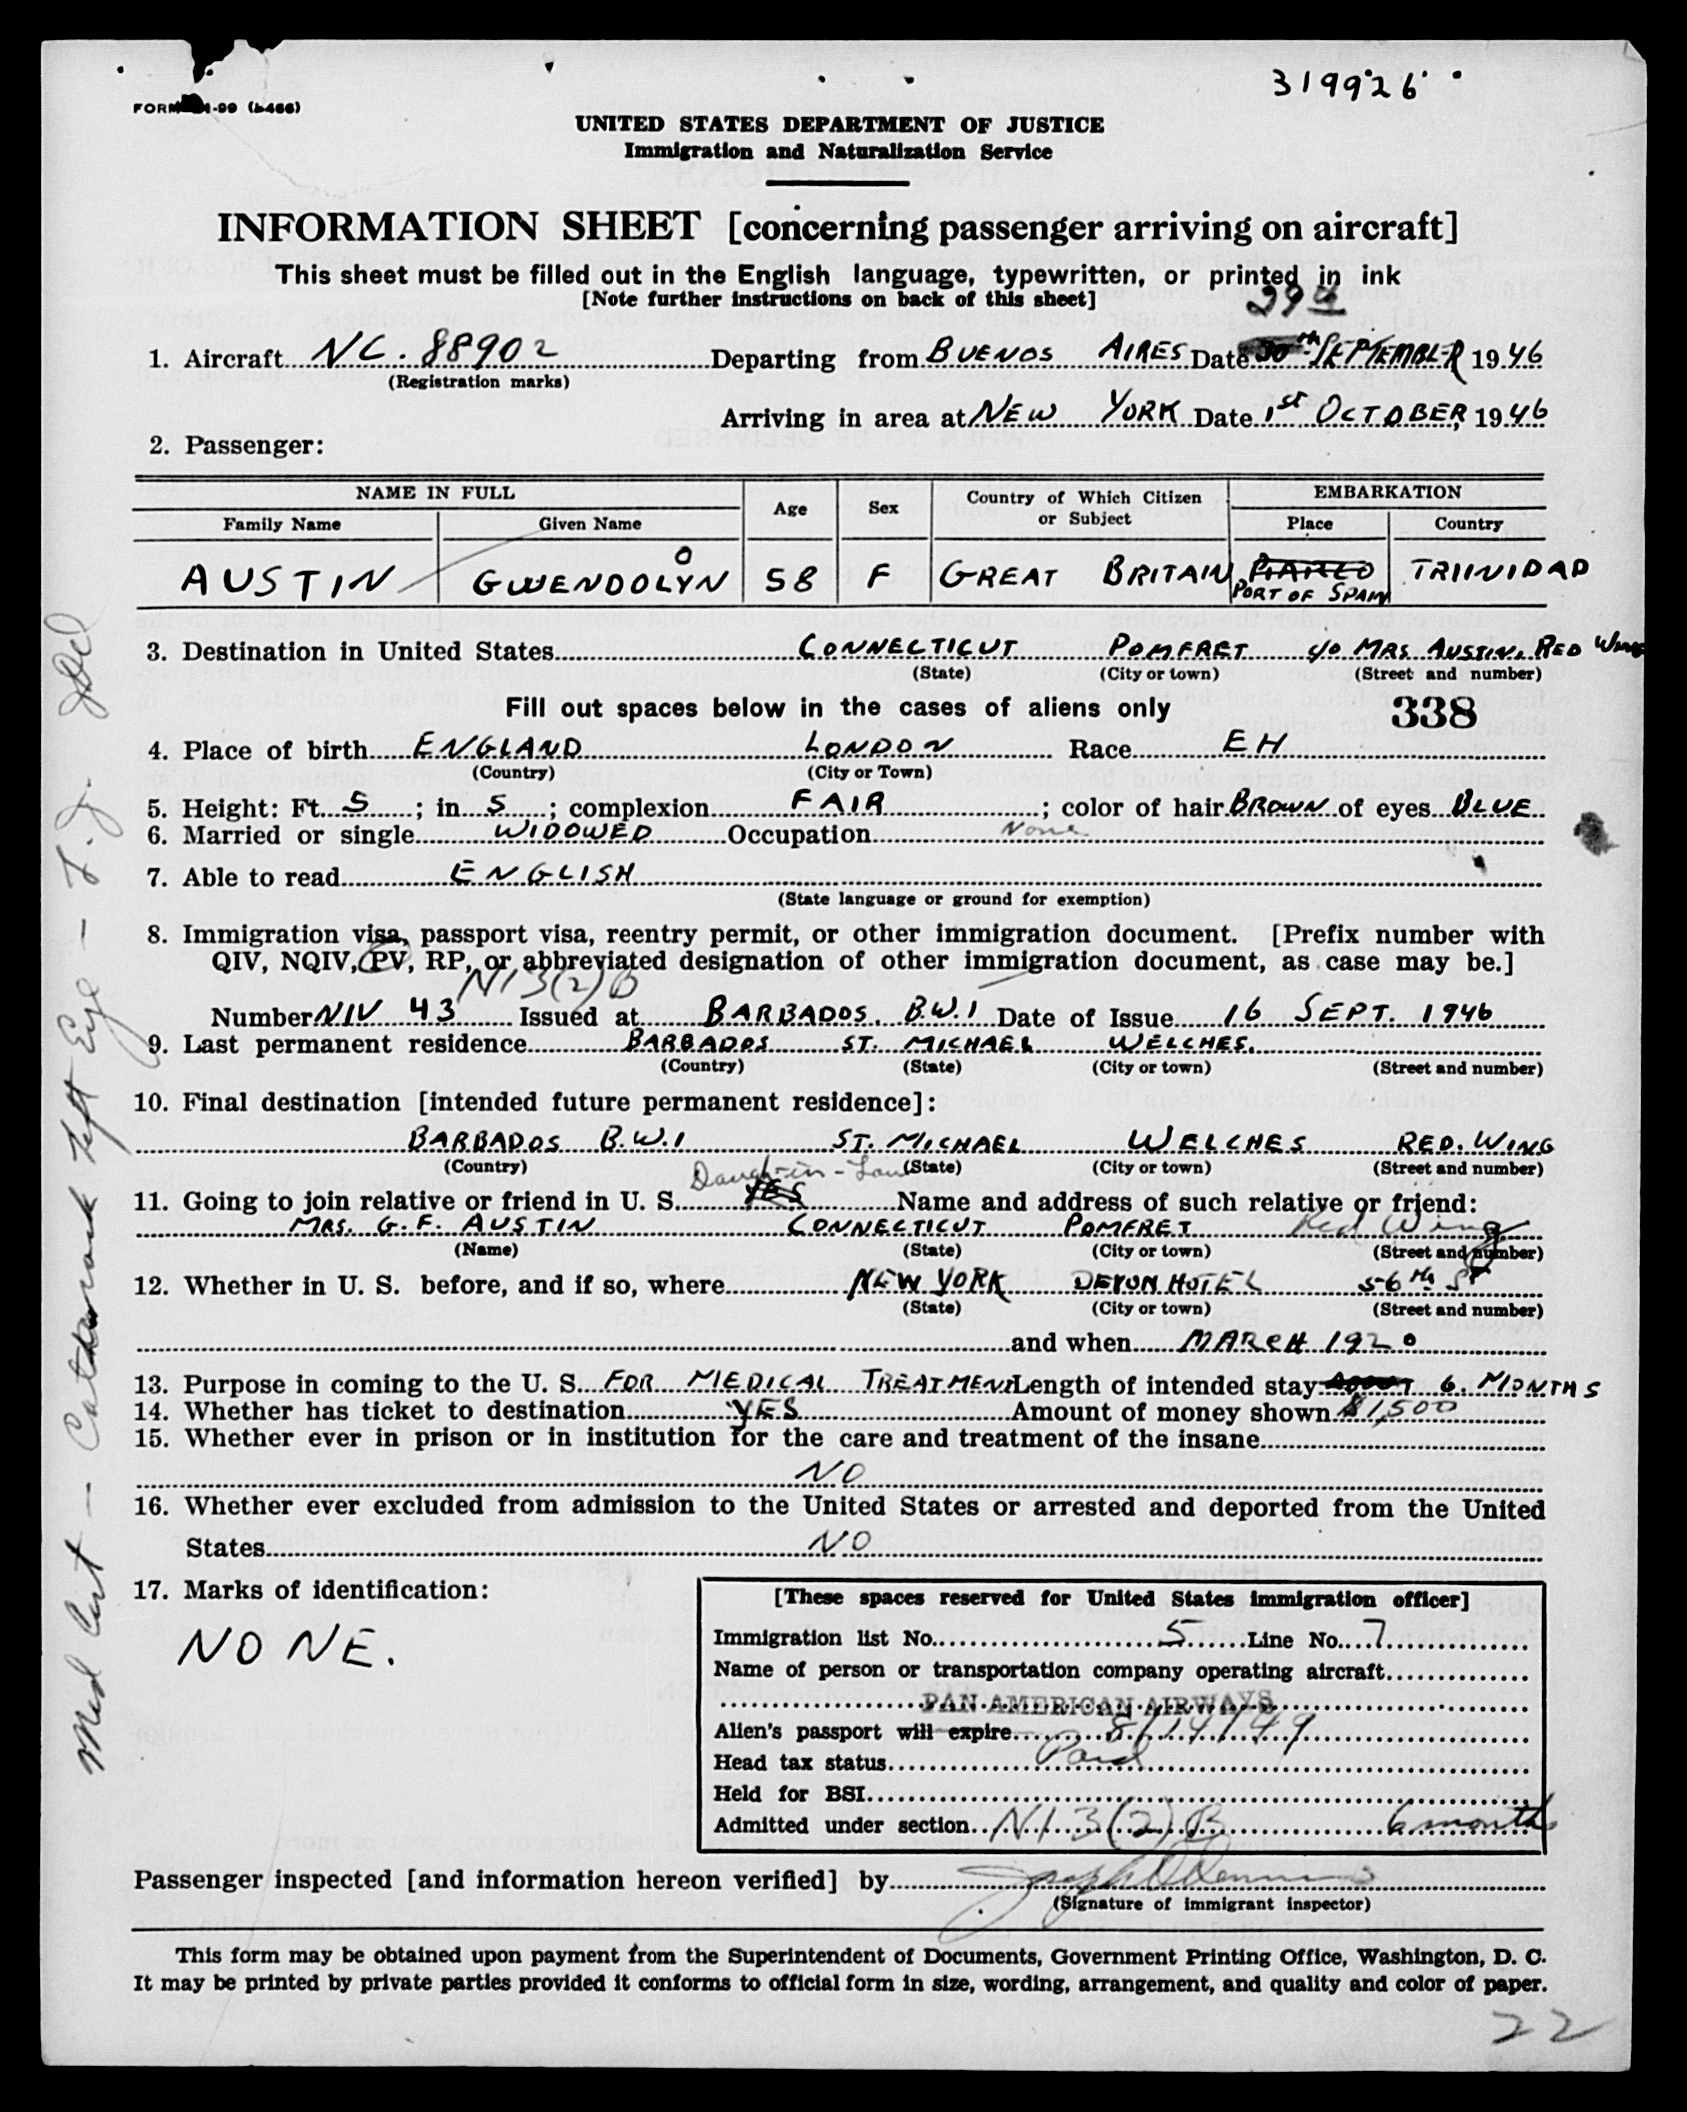 319926
FORM I-99 (5466)
UNITED STATES DEPARTMENT OF JUSTICE
Immigration and Naturalization Service
INFORMATION SHEET [concerning passenger arriving on aircraft]
This sheet must be filled out in the English language, typewritten, or printed in ink
[Note further instructions on back of this sheet]
1. Aircraft NC. 88902 Departing from BUENOS AIRES Date 29 SEPTEMBER 1946
(Registration marks)
Arriving in area at NEW YORK Date 1st OCTOBER, 1946
2. Passenger:
NAME IN FULL Age Sex Country of Which Citizen or Subject EMBARKATION
Family Name Given Name Place Country
AUSTIN GWENDOLYN O 58 F GREAT BRITAIN PIARCO TRINIDAD
PORT OF SPAIN
3. Destination in United States CONNECTICUT POMFRET c/o MRS AUSTIN, RED WING
(State) (City or town) (Street and number)
Fill out spaces below in the cases of aliens only 338
4. Place of birth ENGLAND LONDON Race EH
(Country) (City or Town)
5. Height: Ft. 5; in. 5; complexion FAIR; color of hair BROWN of eyes BLUE
6. Married or single WIDOWED Occupation None
7. Able to read ENGLISH
(State language or ground for exemption)
8. Immigration visa, passport visa, reentry permit, or other immigration document. [Prefix number with
QIV, NQIV, PV, RP, or abbreviated designation of other immigration document, as case may be.]
NI 3(2)B
Number NIV 43 Issued at BARBADOS. B.W.I Date of Issue 16 SEPT. 1946
9. Last permanent residence BARBADOS ST. MICHAEL WELCHES.
(Country) (State) (City or town) (Street and number)
10. Final destination [intended future permanent residence]:
BARBADOS B.W.I ST. MICHAEL WELCHES RED. WING
(Country) (State) (City or town) (Street and number)
Daugh-in-Law
11. Going to join relative or friend in U. S. YES Name and address of such relative or friend:
MRS. G. F. AUSTIN CONNECTICUT POMFRET Red Wing
(Name) (State) (City or town) (Street and number)
12. Whether in U. S. before, and if so, where NEW YORK DEVON HOTEL 56th ST
(State) (City or town) (Street and number)
and when MARCH 1920
13. Purpose in coming to the U. S. FOR MEDICAL TREATMENT Length of intended stay ABOUT 6. MONTHS
14. Whether has ticket to destination YES Amount of money shown $1,500
15. Whether ever in prison or in institution for the care and treatment of the insane
NO
16. Whether ever excluded from admission to the United States or arrested and deported from the United
States NO
17. Marks of identification:
NONE.
[These spaces reserved for United States immigration officer]
Immigration list No. 5 Line No. 7
Name of person or transportation company operating aircraft
PAN AMERICAN AIRWAYS
Alien's passport will expire 8/14/49
Head tax status Paid
Held for BSI
Admitted under section NI 3(2)B 6 months
Passenger inspected [and information hereon verified] by
(Signature of immigrant inspector)
This form may be obtained upon payment from the Superintendent of Documents, Government Printing Office, Washington, D. C.
It may be printed by private parties provided it conforms to official form in size, wording, arrangement, and quality and color of paper.
22
Med Cert - Left Eye -